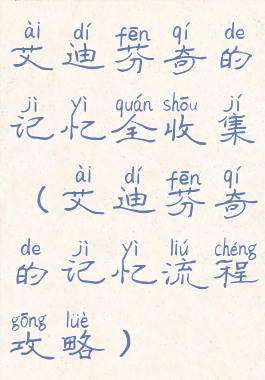 ài dí fēn qí de
艾迪芬奇的
jì yì quán shōu jí
记忆全收集
ài dí fēn qí
（艾迪芬奇
de jì yì liú chéng
的记忆流程
gōng lüè
攻略）